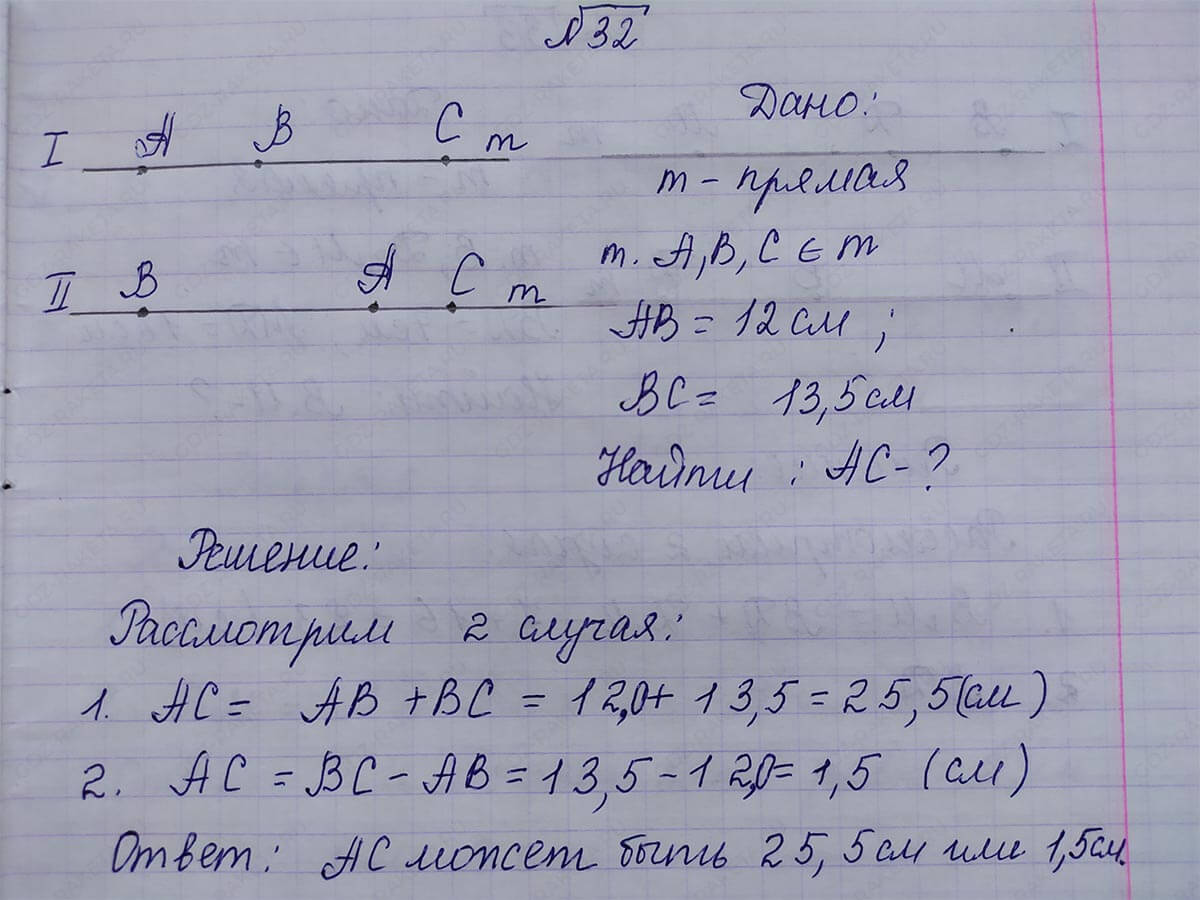 №32
I A B C m
II B A C m
Дано:
m - прямая
т. A, B, C ∈ m
AB = 12 см ;
BC = 13,5 см
Найти : AC - ?
Решение:
Рассмотрим 2 случая:
1. AC = AB + BC = 12,0 + 13,5 = 25,5 (см)
2. AC = BC - AB = 13,5 - 12,0 = 1,5 (см)
Ответ: AC может быть 25,5 см или 1,5 см.